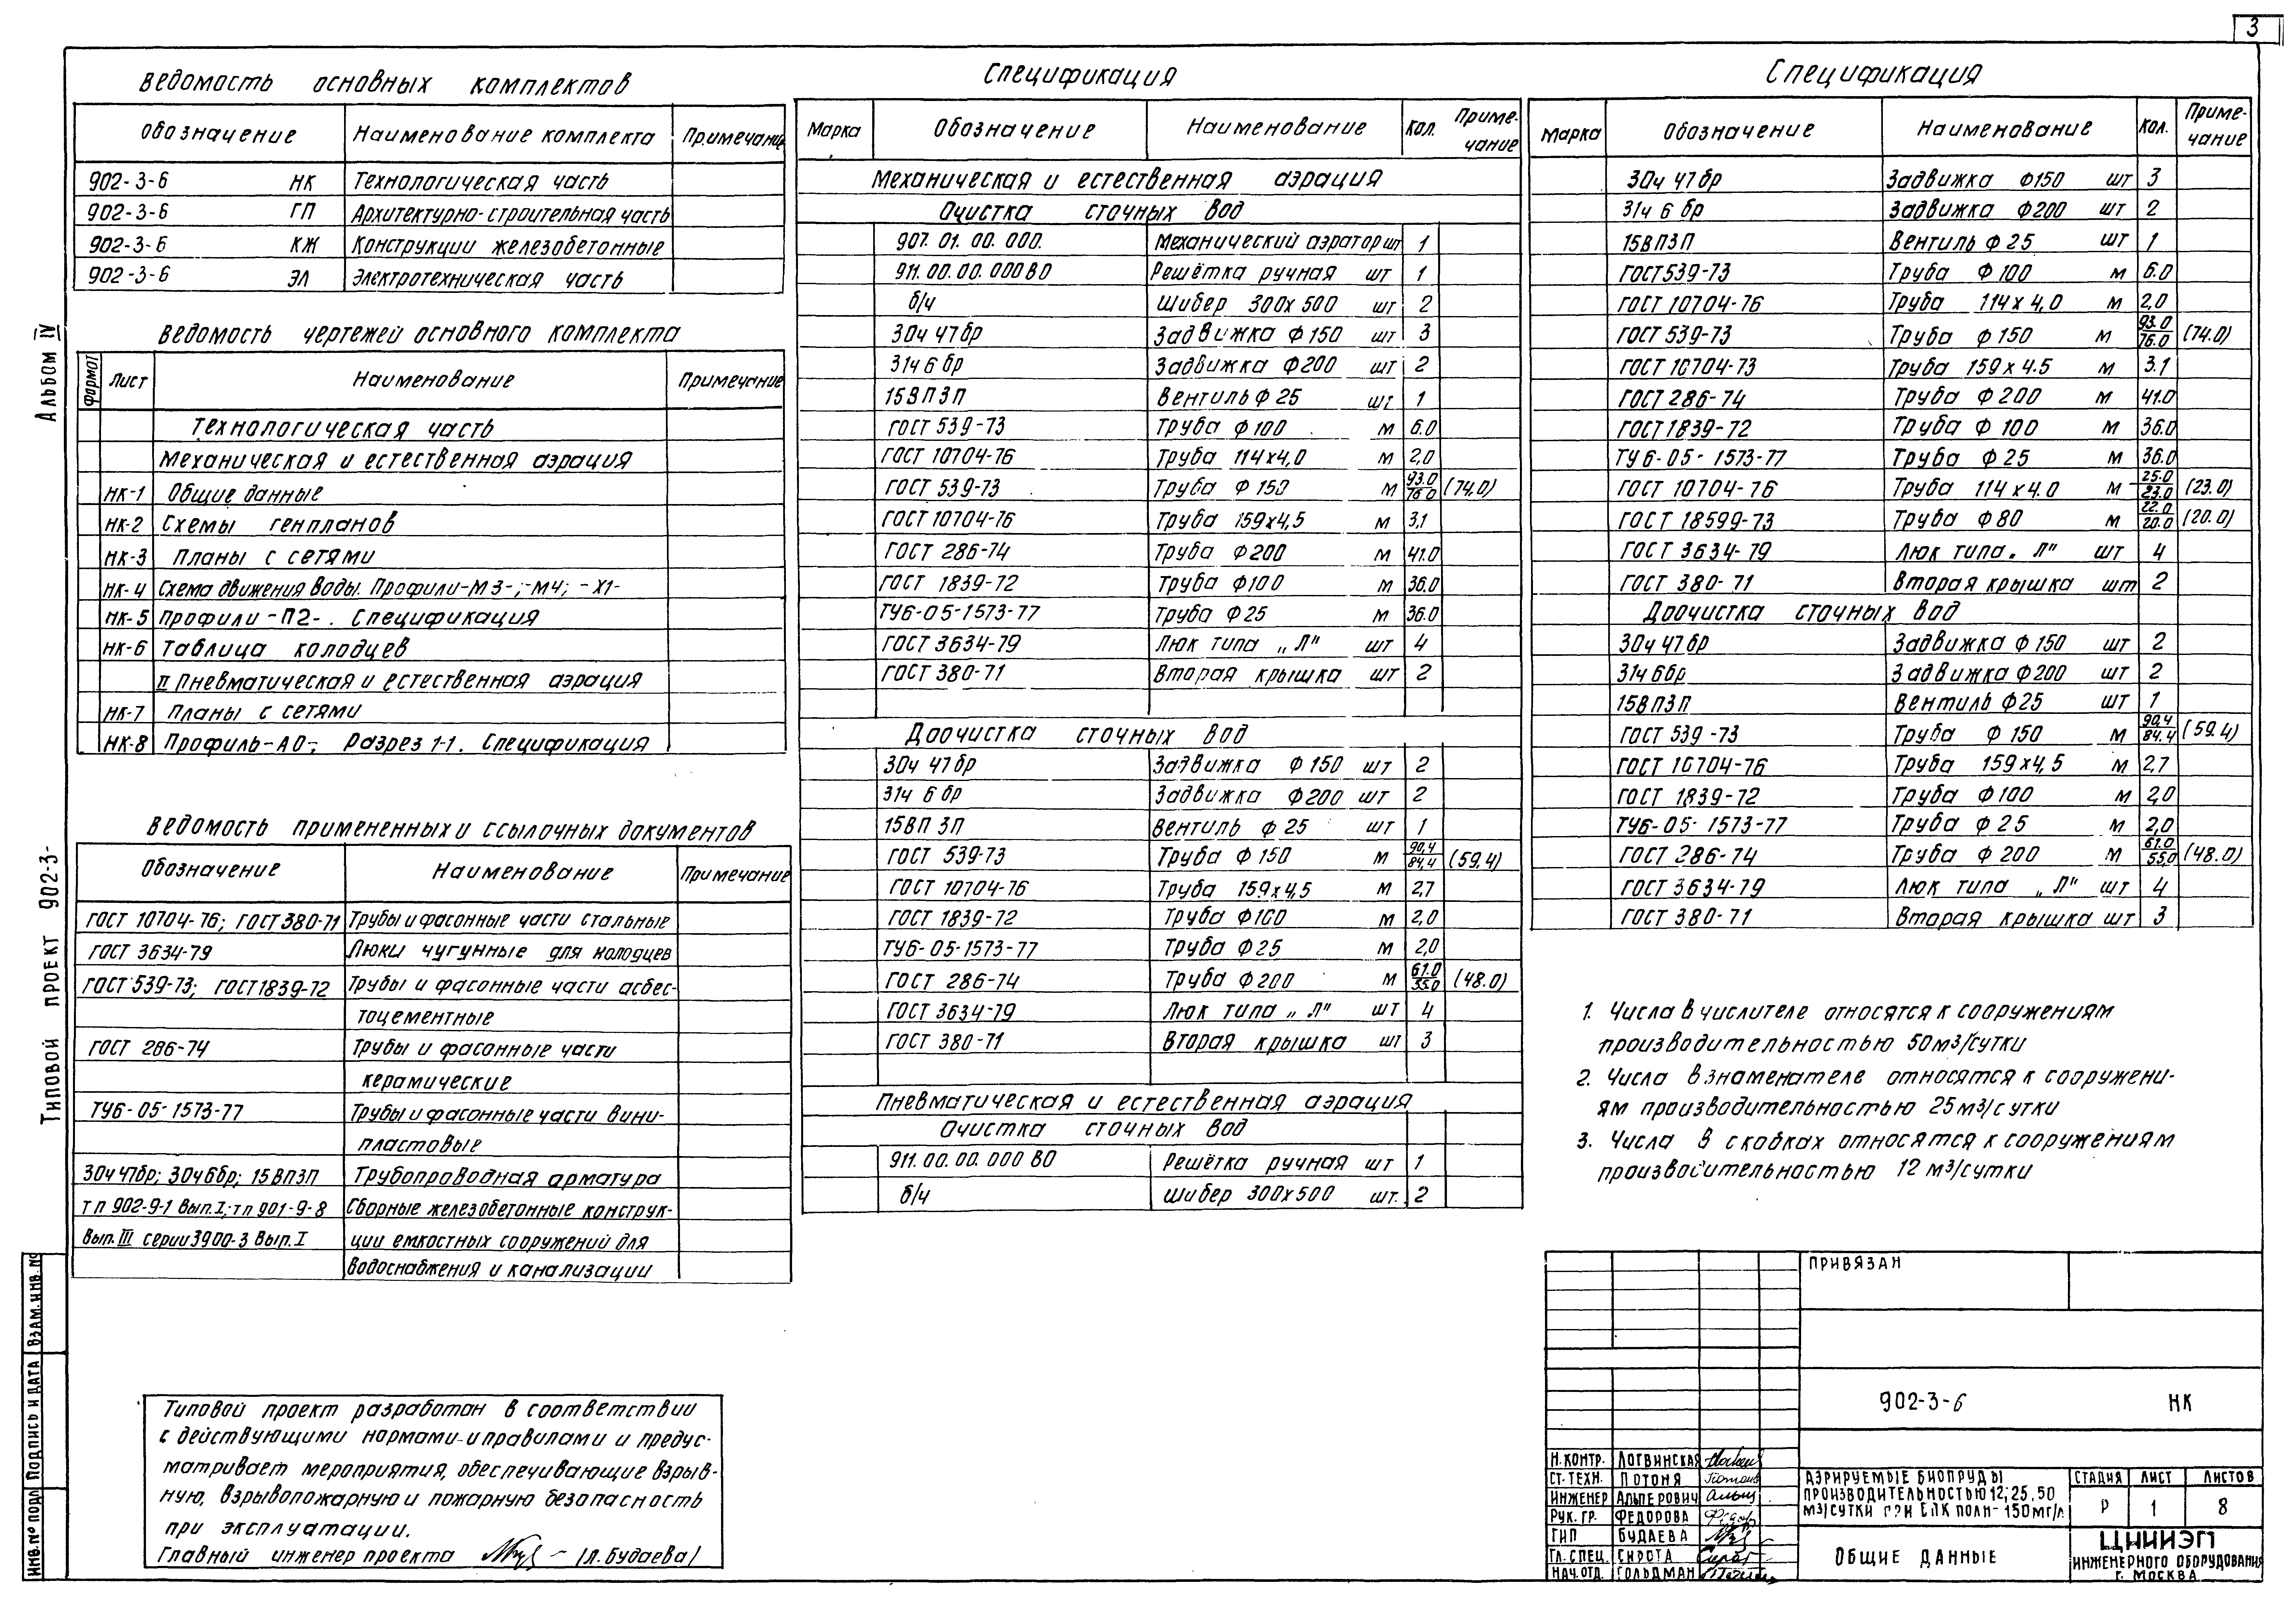 3
Альбом IV
Типовой проект 902-3-
Ведомость основных комплектов
Обозначение Наименование комплекта Примечание
902-3-6 НК Технологическая часть
902-3-6 ГП Архитектурно-строительная часть
902-3-6 КЖ Конструкции железобетонные
902-3-6 ЭЛ Электротехническая часть
Ведомость чертежей основного комплекта
Формат Лист Наименование Примечание
Технологическая часть
Механическая и естественная аэрация
НК-1 Общие данные
НК-2 Схемы генпланов
НК-3 Планы с сетями
НК-4 Схема движения воды. Профили-М3-;-М4; -Х1-
НК-5 Профили -П2-. Спецификация
НК-6 Таблица колодцев
II Пневматическая и естественная аэрация
НК-7 Планы с сетями
НК-8 Профиль-А0-; Разрез 1-1. Спецификация
Ведомость примененных и ссылочных документов
Обозначение Наименование Примечание
ГОСТ 10704-76; ГОСТ 380-71 Трубы и фасонные части стальные
ГОСТ 3634-79 Люки чугунные для колодцев
ГОСТ 539-73; ГОСТ 1839-72 Трубы и фасонные части асбес-
тоцементные
ГОСТ 286-74 Трубы и фасонные части
керамические
ТУ6-05-1573-77 Трубы и фасонные части вини-
пластовые
30ч 47бр; 30ч 6бр; 15ВП3П Трубопроводная арматура
тп 902-9-1 Вып.I; тп 901-9-8 Сборные железобетонные конструк-
Вып. III серии 3900-3 Вып. I ции емкостных сооружений для
водоснабжения и канализации
Типовой проект разработан в соответствии
с действующими нормами и правилами и предус-
матривает мероприятия, обеспечивающие взрыв-
ную, взрывопожарную и пожарную безопасность
при эксплуатации.
Главный инженер проекта (Л. Будаева)
Спецификация
Марка Обозначение Наименование Кол. Приме-
чание
Механическая и естественная аэрация
Очистка сточных вод
907. 01. 00. 000. Механический аэратор шт 1
911. 00. 00. 000 ВО Решётка ручная шт 1
б/ч Шибер 300х500 шт 2
30ч 47бр Задвижка Ф150 шт 3
31ч 6бр Задвижка Ф200 шт 2
15ВП3П Вентиль Ф25 шт 1
ГОСТ 539-73 Труба Ф100 м 6.0
ГОСТ 10704-76 Труба 114х4,0 м 2,0
ГОСТ 539-73 Труба Ф150 м 93.0/76.0 (74.0)
ГОСТ 10704-76 Труба 159х4,5 м 3,1
ГОСТ 286-74 Труба Ф200 м 41.0
ГОСТ 1839-72 Труба Ф100 м 36.0
ТУ6-05-1573-77 Труба Ф25 м 36.0
ГОСТ 3634-79 Люк типа „Л" шт 4
ГОСТ 380-71 Вторая крышка шт 2
Доочистка сточных вод
30ч 47бр Задвижка Ф150 шт 2
31ч 6бр Задвижка Ф200 шт 2
15ВП3П Вентиль Ф25 шт 1
ГОСТ 539-73 Труба Ф150 м 90,4/84,4 (59.4)
ГОСТ 10704-76 Труба 159х4,5 м 2,7
ГОСТ 1839-72 Труба Ф100 м 2,0
ТУ6-05-1573-77 Труба Ф25 м 2,0
ГОСТ 286-74 Труба Ф200 м 61.0/55.0 (48.0)
ГОСТ 3634-79 Люк типа „Л" шт 4
ГОСТ 380-71 Вторая крышка шт 3
Пневматическая и естественная аэрация
Очистка сточных вод
911. 00. 00. 000 ВО Решётка ручная шт 1
б/ч Шибер 300х500 шт. 2
Спецификация
Марка Обозначение Наименование Кол. Приме-
чание
30ч 47бр Задвижка Ф150 шт 3
31ч 6бр Задвижка Ф200 шт 2
15ВП3П Вентиль Ф25 шт 1
ГОСТ 539-73 Труба Ф100 м 6.0
ГОСТ 10704-76 Труба 114х4,0 м 2,0
ГОСТ 539-73 Труба Ф150 м 93.0/76.0 (74.0)
ГОСТ 10704-73 Труба 159х4.5 м 3.1
ГОСТ 286-74 Труба Ф200 м 41.0
ГОСТ 1839-72 Труба Ф100 м 36.0
ТУ6-05-1573-77 Труба Ф25 м 36.0
ГОСТ 10704-76 Труба 114х4.0 м 25.0/23.0 (23.0)
ГОСТ 18599-73 Труба Ф80 м 22.0/20.0 (20.0)
ГОСТ 3634-79 Люк типа „Л" шт 4
ГОСТ 380-71 Вторая крышка шт 2
Доочистка сточных вод
30ч 47бр Задвижка Ф150 шт 2
31ч 6бр Задвижка Ф200 шт 2
15ВП3П Вентиль Ф25 шт 1
ГОСТ 539-73 Труба Ф150 м 90,4/84.4 (59.4)
ГОСТ 10704-76 Труба 159х4,5 м 2,7
ГОСТ 1839-72 Труба Ф100 м 2,0
ТУ6-05-1573-77 Труба Ф25 м 2,0
ГОСТ 286-74 Труба Ф200 м 61.0/55.0 (48.0)
ГОСТ 3634-79 Люк типа „Л" шт 4
ГОСТ 380-71 Вторая крышка шт 3
1. Числа в числителе относятся к сооружениям
производительностью 50м3/сутки
2. Числа в знаменателе относятся к сооружени-
ям производительностью 25м3/сутки
3. Числа в скобках относятся к сооружениям
производительностью 12 м3/сутки
Привязан
902-3-6 НК
Н.контр. Логвинская
Ст.техн. Потоня
Инженер Альперович
Рук. гр. Федорова
ГИП Будаева
Гл. спец. Сирота
Нач. отд. Гольдман
Аэрируемые биопруды
производительностью 12, 25, 50
м3/сутки при БПК полн-150мг/л
Стадия Лист Листов
Р 1 8
Общие данные
ЦНИИЭП
инженерного оборудования
г. Москва
Инв. № подл Подпись и дата Взам. инв. №